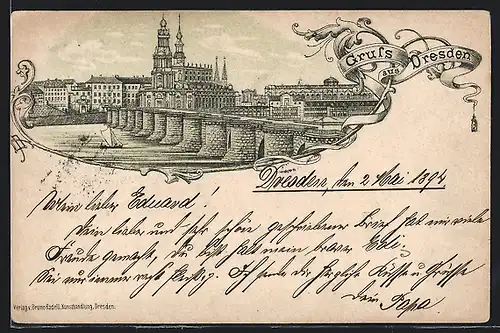 Gruss
aus
Dresden
Dresden, den 2 Mai 1894
Mein lieber Eduard!
Dein lieber und sehr schön geschriebener Brief hat mir viele
Freude gemacht, du bist halt mein braver Edi.
Sei nur immer recht fleißig. Ich sende dir herzliche Küsse u Grüsse
dein Papa
Verlag v. Bruno Radelli, Kunsthandlung, Dresden.